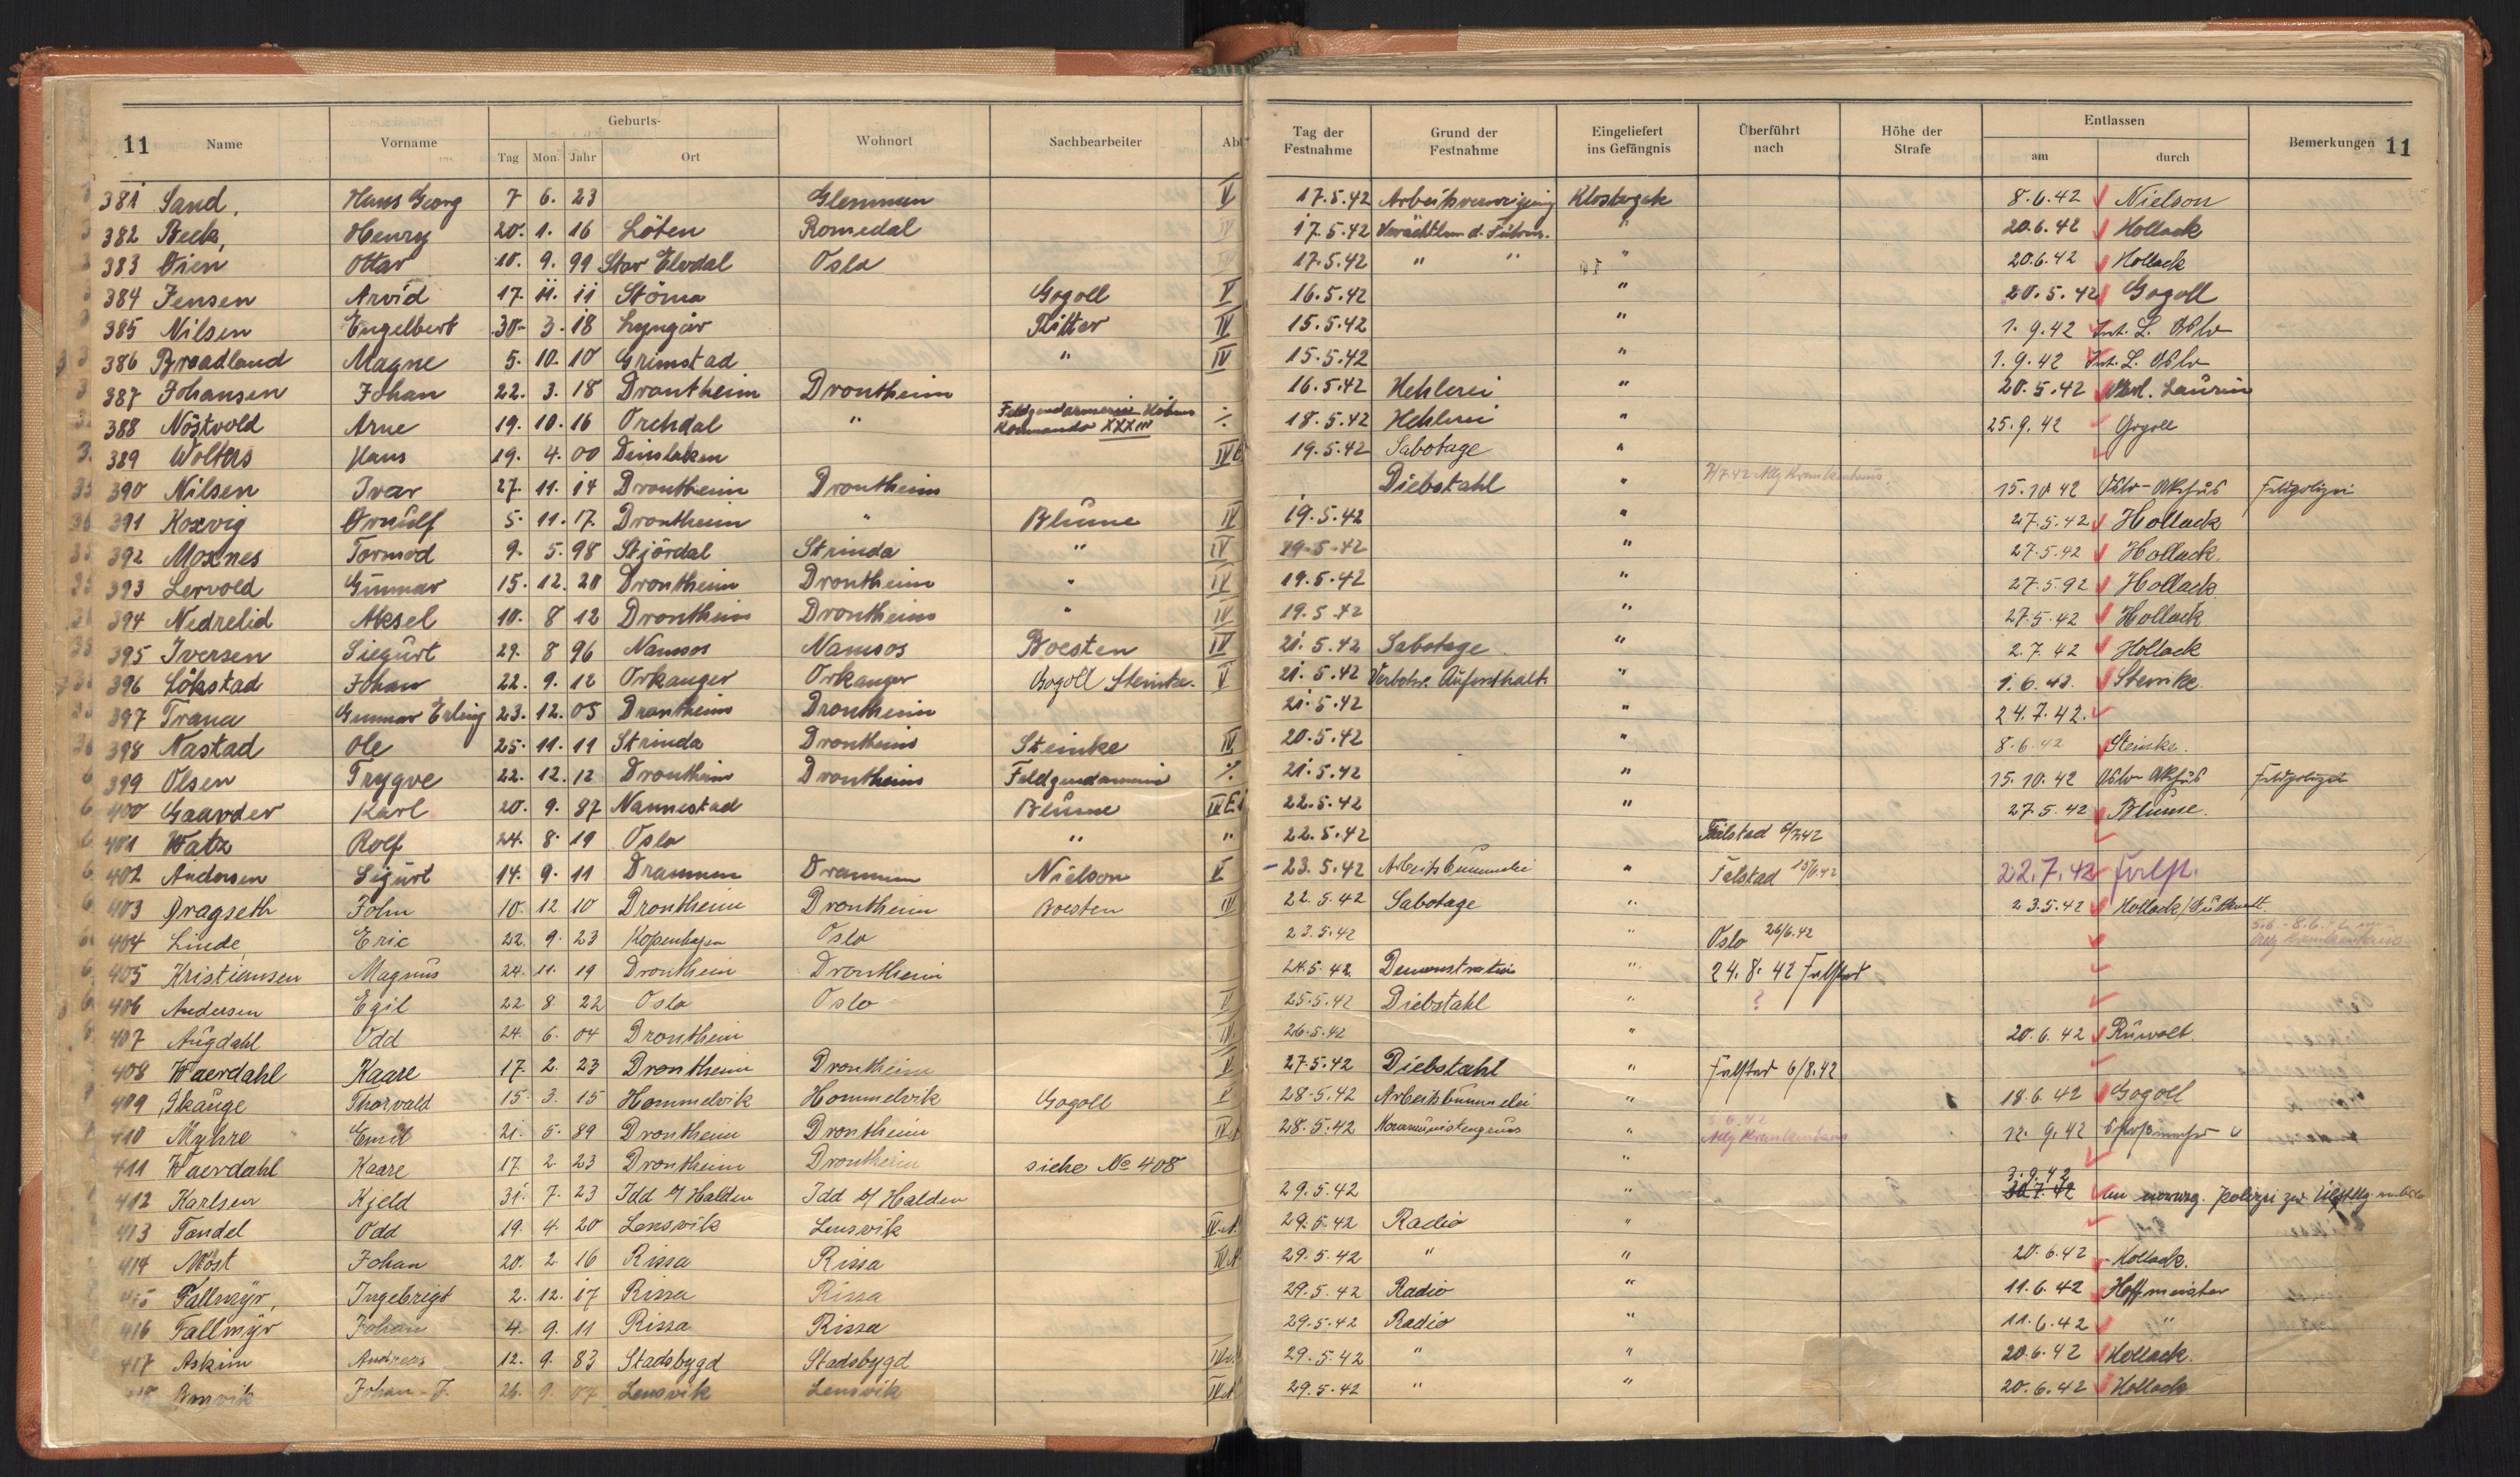 11 Name Vorname Geburts- Tag Mon. Jahr Ort Wohnort Sachbearbeiter Abt Tag der Festnahme Grund der Festnahme Eingeliefert ins Gefängnis Überführt nach Höhe der Strafe Entlassen am durch Bemerkungen 11
381 Sand, Hans Georg 7 6. 23 Glemmen V 17.5.42 Arbeitsverweigerung 8.6.42 Nielson
382 Beck, Henry 20. 1. 16 Löten Romedal IV 17.5.42 " 20.6.42 Hollack
383 Oien Ottar 10. 9. 99 Stor Elvdal Oslo IV 17.5.42 " " " 20.6.42 Hollack
384 Jensen Arvid 17. 11. 11 Störna Gogoll V 16.5.42 " 20.5.42 Gogoll
385 Nilsen Engelbert 30. 3. 18 Lyngör Ritter IV 15.5.42 " 1.9.42 Int. L. Oslo
386 Broadland Magne 5. 10. 10 Grimstad " IV 15.5.42 " 1.9.42 Int. L. Oslo
387 Johansen Johan 22. 3. 18 Drontheim Drontheim 16.5.42 Hehlerei " 20.5.42
388 Nöstvold Arne 19. 10. 16 Orchdal " Feldgendarmerie Höhres Kommando XXXIII ./. 18.5.42 Hehlerei " 25.9.42 Gogoll
389 Wolters Hans 19. 4. 00 Dinslaken 19.5.42 Sabotage "
390 Nilsen Ivar 27. 11. 14 Drontheim Drontheim Diebstahl " 7/7.42 Allg Krankenhaus 15.10.42 Oslo-Akehus Feldpolizei
391 Koxvig Ornulf 5. 11. 17. Drontheim " Blume IV 19.5.42 " 27.5.42 Hollack
392 Moxnes Tormod 9. 5. 98 Stjördal Strinda " IV 19.5.42 " 27.5.42 Hollack.
393 Lervold Gunnar 15. 12. 20 Drontheim Drontheim " IV 19.5.42 " 27.5.42 Hollack
394 Nedrelid Aksel 10. 8 12 Drontheim Drontheim " IV 19.5.42 " 27.5.42 Hollack
395 Iversen Siegurt 29. 8 96 Namsos Namsos Boesten IV 21.5.42 Sabotage " 2.7.42 Hollack
396 Lökstad Johan 22. 9. 12 Orkanger Orkanger Gogoll Steinke. V 21.5.42 Verbotw. Aufenthalt. " 1.6.42. Steinke
397 Trana Gunnar Erling 23. 12. 05 Drontheim Drontheim 21.5.42 " 24.7.42.
398 Nastad Ole 25. 11. 11 Strinda Drontheim Steinke IV 20.5.42 " 8.6.42 Steinke.
399 Olsen Trygve 22. 12. 12 Drontheim Drontheim Feldgendarmerie ./. 21.5.42 " 15.10.42 Oslo Akehus Feldpolizei
400 Gaarder Karl 20. 9. 87 Nannestad Blume 22.5.42 " 27.5.42 Blume.
401 Watz Rolf 24. 8. 19 Oslo " " 22.5.42
402 Andersen Sigurt 14. 9. 11 Drammen Drammen Nielson V 23.5.42 Arbeitsbummelei " Falstad 22.7.42
403 Dragseth John 10. 12 10 Drontheim Drontheim Boesten IV 22.5.42 Sabotage " 23.5.42
404 Linde Eric 22. 9. 23 Kopenhagen Oslo 23.5.42 " Oslo 26/6.42
405 Kristiansen Magnus 24. 11. 19 Drontheim Drontheim 24.5.42 Demonstration " 24.8.42 Falstad
406 Andersen Egil 22 8. 22 Oslo Oslo V 25.5.42 Diebstahl " ?
407 Augdahl Odd 24. 6. 04 Drontheim IV 26.5.42 " 20.6.42 Ruwolt.
408 Waerdahl Kaare 17. 2. 23 Drontheim Drontheim V 27.5.42 Diebstahl " Falstad 6/8.42
409 Skauge Thorvald 15. 3. 15 Hommelvik Hommelvik Gogoll V 28.5.42 Arbeitsbummelei " 18.6.42 Gogoll
410 Myhre Emil 21. 5. 89 Drontheim Drontheim 28.5.42 " Allg Krankenhaus 12.9.42
411 Waerdahl Kaare 17. 2 23 Drontheim Drontheim siehe No 408 "
412 Karlsen Kjeld 31. 7. 23 Idd b/ Halden Idd b/ Halden 29.5.42 " 3.9.42 30.7.42
413 Tandel Odd 19. 4. 20 Lensvik Lensvik IV A. 29.5.42 Radio "
414 Möst Johan 20. 2. 16 Rissa Rissa IV A 29.5.42 " " 20.6.42 Hollack.
415 Fallmyr, Ingebrigt 2. 12. 17 Rissa Rissa 29.5.42 Radio " 11.6.42 Hoffmeister
416 Fallmyr Johan 4. 9. 11 Rissa Rissa 29.5.42 Radio " 11.6.42 "
417 Askim Andreas 12. 9. 83 Stadsbygd Stadsbygd IV A 29.5.42 " " 20.6.42 Hollack.
418 Johan J. 26. 9. 07 Lensvik Lensvik IV A 29.5.42 " " 20.6.42 Hollack